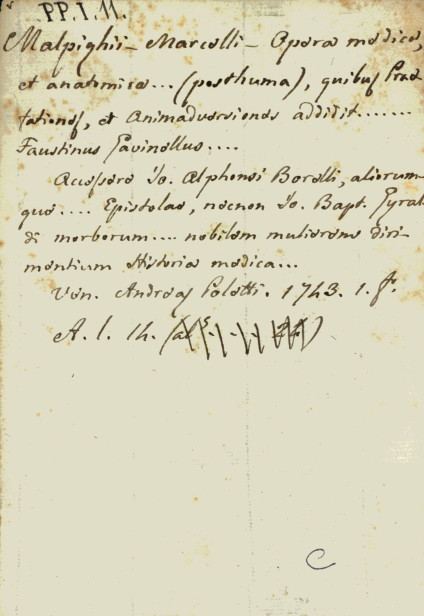 PP.I.11.
Malpighii - Marcelli - Opera medica,
et anatomica... (posthuma), quibus Prae
fationes, et Animadversiones addidit.......
Faustinus Gavinellus....
Accessere Jo. Alphonsi Borelli, aliorum-
que.... Epistolae, necnon Jo. Bapt. Gyral
di morborum.... nobilem mulierem diri-
mentium Historia medica...
Ven. Andreas Poletti. 1743. 1. f.
A. l. 14.
C